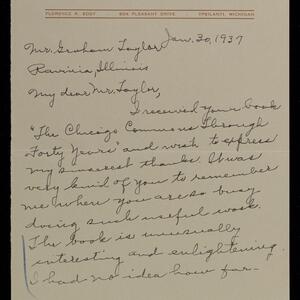 FLORENCE R. EDDY · 904 PLEASANT DRIVE · YPSILANTI, MICHIGAN
Jan. 30, 1937
Mr. Graham Taylor
Ravinia, Illinois
My dear Mr. Taylor,
I received your book
"The Chicago Commons Through
Forty Years" and wish to express
my sincerest thanks. It was
very kind of you to remember
me when you are so busy
doing such useful work.
The book is unusually
interesting and enlightening.
I had no idea how far-